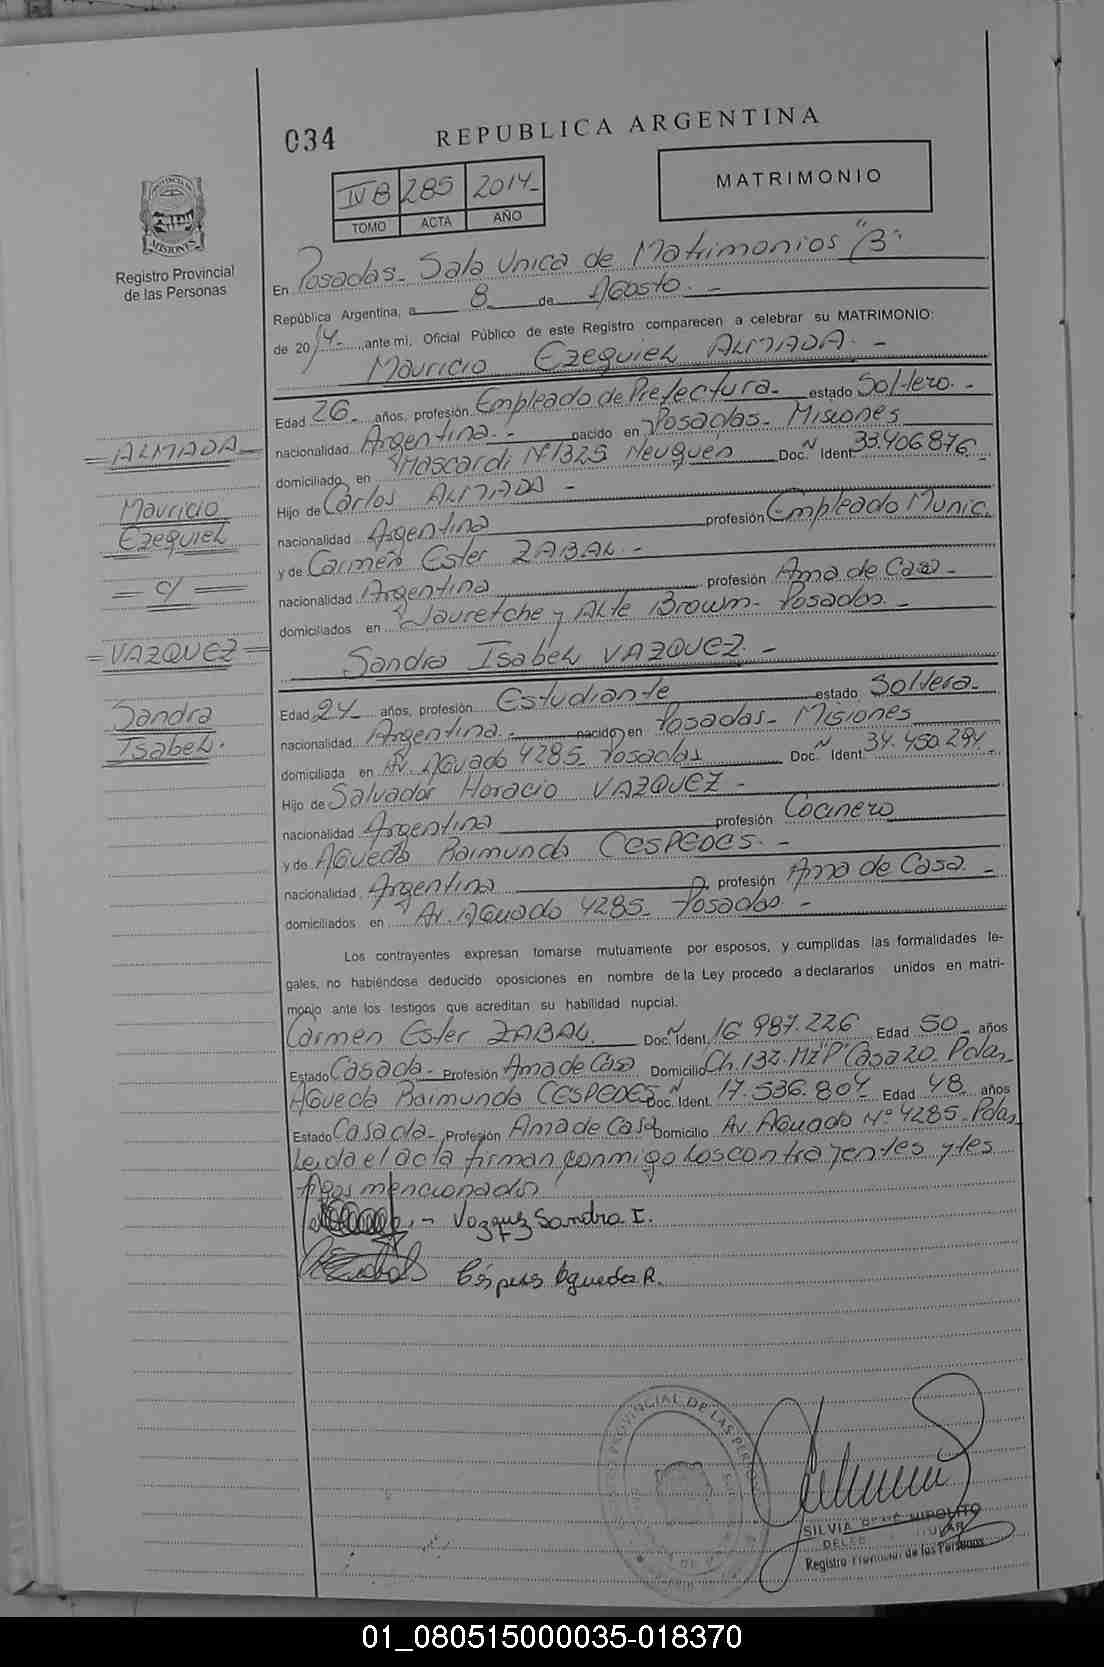 034
REPUBLICA ARGENTINA
IV B 285 2014-
TOMO ACTA AÑO
MATRIMONIO
PROVINCIA
MISIONES
Registro Provincial
de las Personas
En Posadas- Sala Unica de Matrimonios "B"
República Argentina, a 8 de Agosto. -
de 2014- ,ante mi, Oficial Público de este Registro comparecen a celebrar su MATRIMONIO:
Mauricio Ezequiel ALMADA. -
Edad 26- años, profesión Empleado de Prefectura- estado Soltero. -
nacionalidad Argentina. - nacido en Posadas- Misiones
domiciliado en Mascardi Nº1325 Neuquén Doc. N Ident 33.406.876-
Hijo de Carlos ALMADA -
nacionalidad Argentina profesión Empleado Munic.
y de Carmen Ester ZABAL. -
nacionalidad Argentina profesión Ama de Casa -
domiciliados en Jauretche y Alte Brown- Posadas. -
Sandra Isabel VAZQUEZ. -
Edad 24- años, profesión Estudiante estado Soltera-
nacionalidad Argentina. - nacido en Posadas- Misiones
domiciliada en Av. Aguado 4285- Posadas Doc. N Ident. 34.450.294-
Hijo de Salvador Horacio VAZQUEZ -
nacionalidad Argentina profesión Cocinero
y de Agueda Raimunda CESPEDES. -
nacionalidad Argentina profesión Ama de Casa. -
domiciliados en Av. Aguado 4285- Posadas -
ALMADA
Mauricio
Ezequiel
- c/ -
VAZQUEZ
Sandra
Isabel.
Los contrayentes expresan tomarse mutuamente por esposos, y cumplidas las formalidades le-
gales, no habiéndose deducido oposiciones en nombre de la Ley procedo a declararlos unidos en matri-
monio ante los testigos que acreditan su habilidad nupcial.
Carmen Ester ZABAL. Doc. N Ident. 16 987.226 Edad 50- años
Estado Casada- Profesión Ama de Casa Domicilio Ch.132. Mz"P" Casa 20- Pdas-
Agueda Raimunda CESPEDES Doc. N Ident. 17.536.804 Edad 48 años
Estado Casada- Profesión Ama de Casa Domicilio Av. Aguado Nº 4285- Pdas
Leida el acta firman conmigo los contrayentes y tes
tigos mencionados
- Vazquez Sandra I.
Céspedes Agueda R.
PROVINCIAL DE LAS PERSONAS
SILVIA HIPOLITO
Registro Provincial de las Personas
01_080515000035-018370